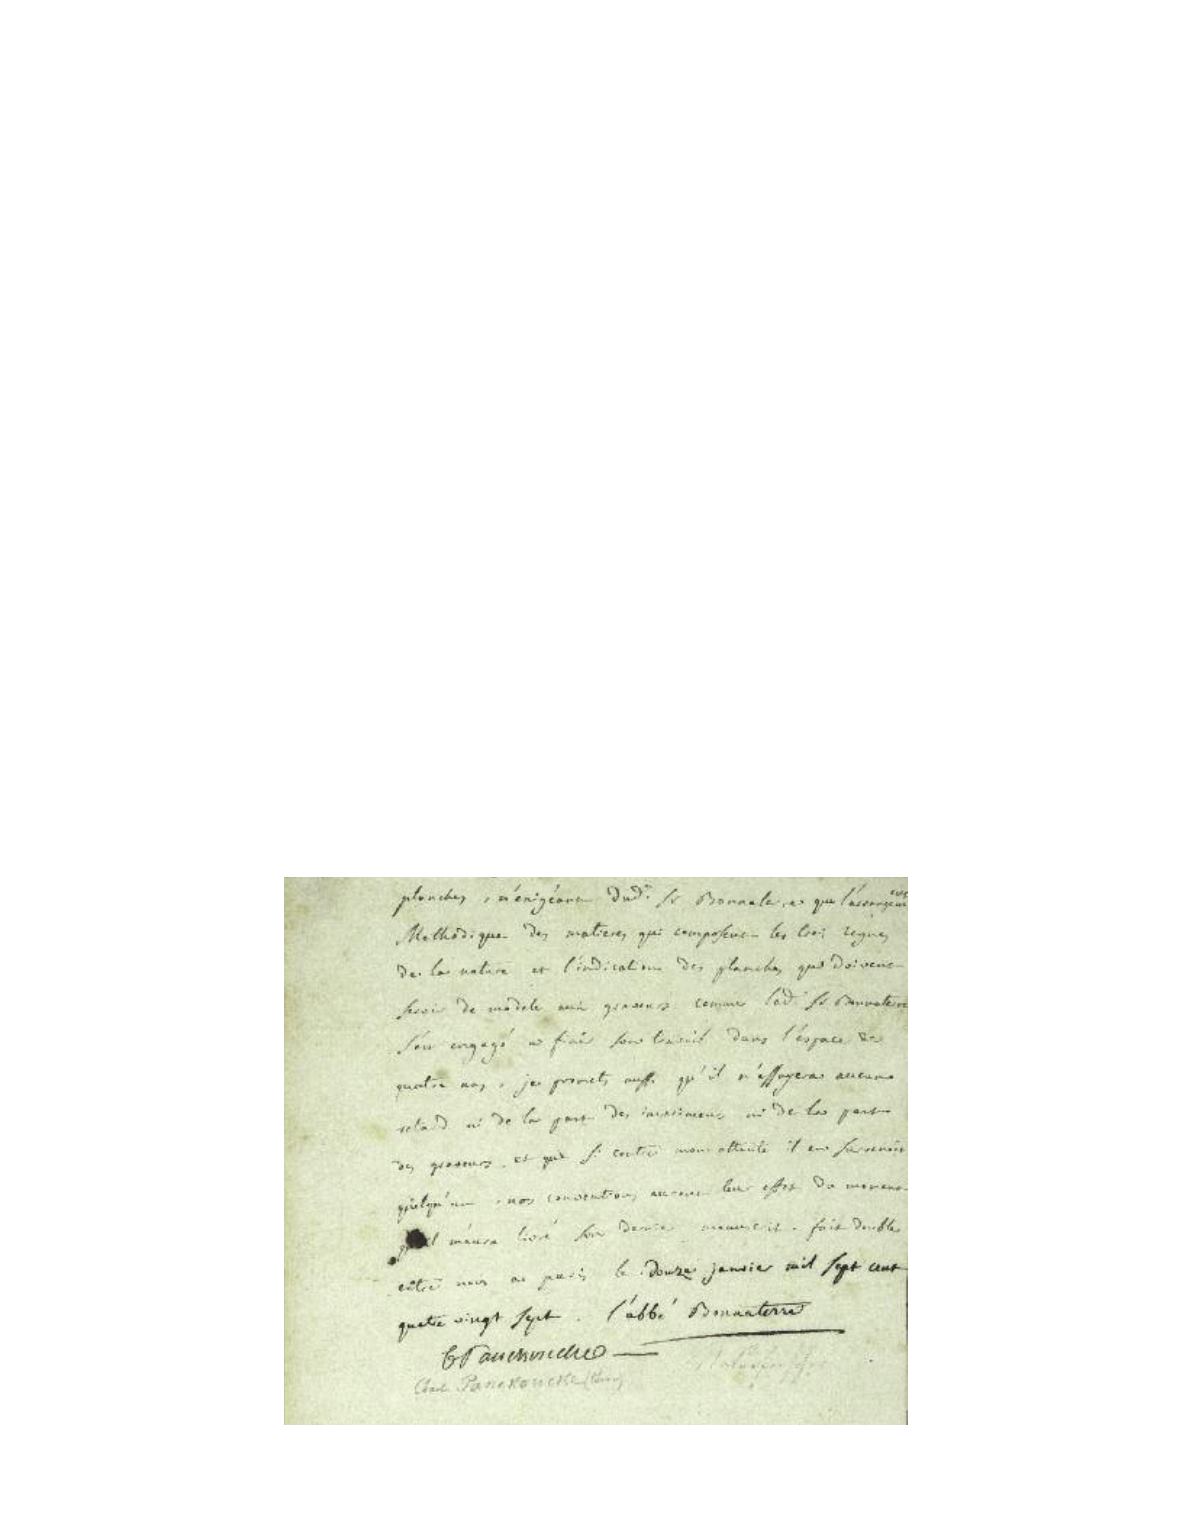 planches, n'éxigéant dud. Sr Bonnaterre que l'arrangement
Methodique des matieres qui composent les trois regnes
de la nature et l'indication des planches qui doivent
servir de modele aux graveurs. comme led. Sr Bonnaterre
s'est engagé a finir son travail dans l'espace de
quatre ans, je promets aussi qu'il n'essuyera aucun
retard ni de la part des imprimeurs ni de la part
des graveurs, et que si contre mon attente il en survenoit
quelqu'un, nos conventions auront leur effet du moment
qu'il m'aura livré son dernier manuscrit. fait double
entre nous a paris le douze janvier mil sept cent
quatre vingt sept. l'abbé Bonnaterre
C Panckoucke
Panckoucke